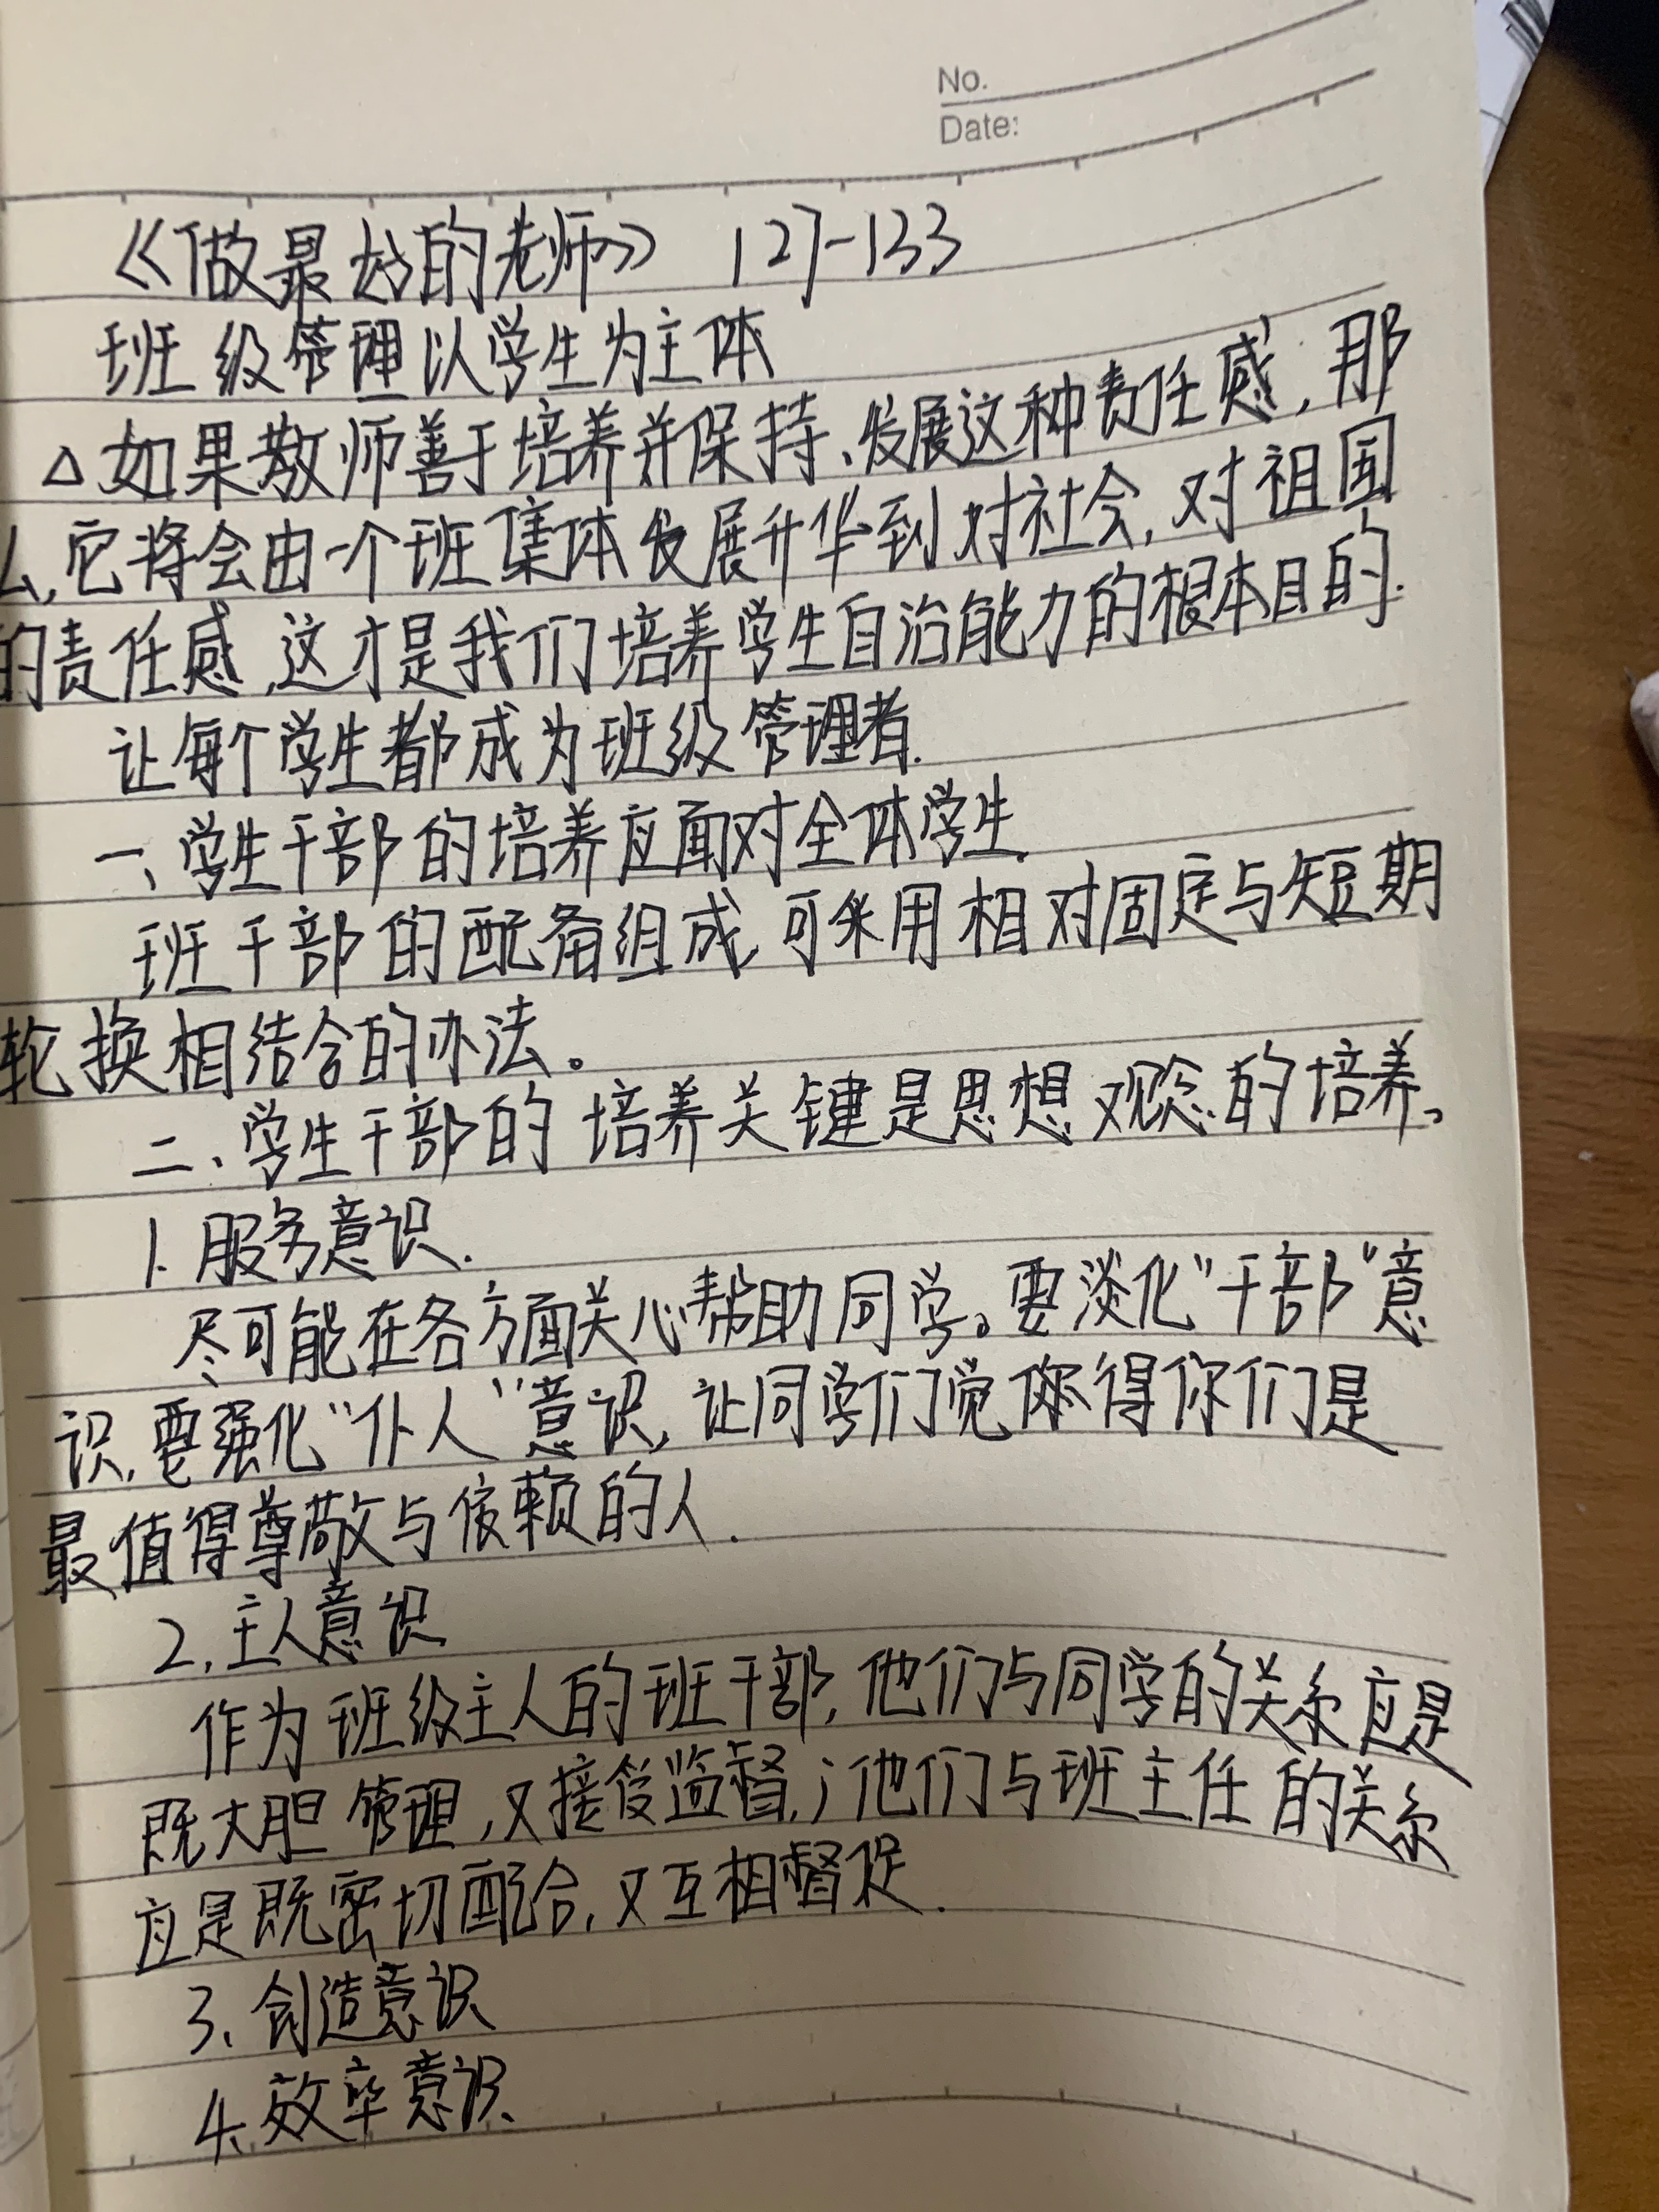 No.
Date:
《做最好的老师》 127-133
班级管理以学生为主体
△如果教师善于培养并保持、发展这种责任感,那
么,它将会由一个班集体发展升华到对社会,对祖国
的责任感,这才是我们培养学生自治能力的根本目的.
让每个学生都成为班级管理者.
一、学生干部的培养应面对全体学生.
班干部的配备组成,可采用相对固定与短期
轮换相结合的办法。
二、学生干部的培养关键是思想观念的培养。
1.服务意识.
尽可能在各方面关心帮助同学。要淡化"干部"意
识,要强化"仆人"意识,让同学们觉得你们是
最值得尊敬与依赖的人.
2.主人意识
作为班级主人的班干部,他们与同学的关系应是
既大胆管理,又接受监督,;他们与班主任的关系
应是既密切配合,又互相督促.
3、创造意识
4、效率意识